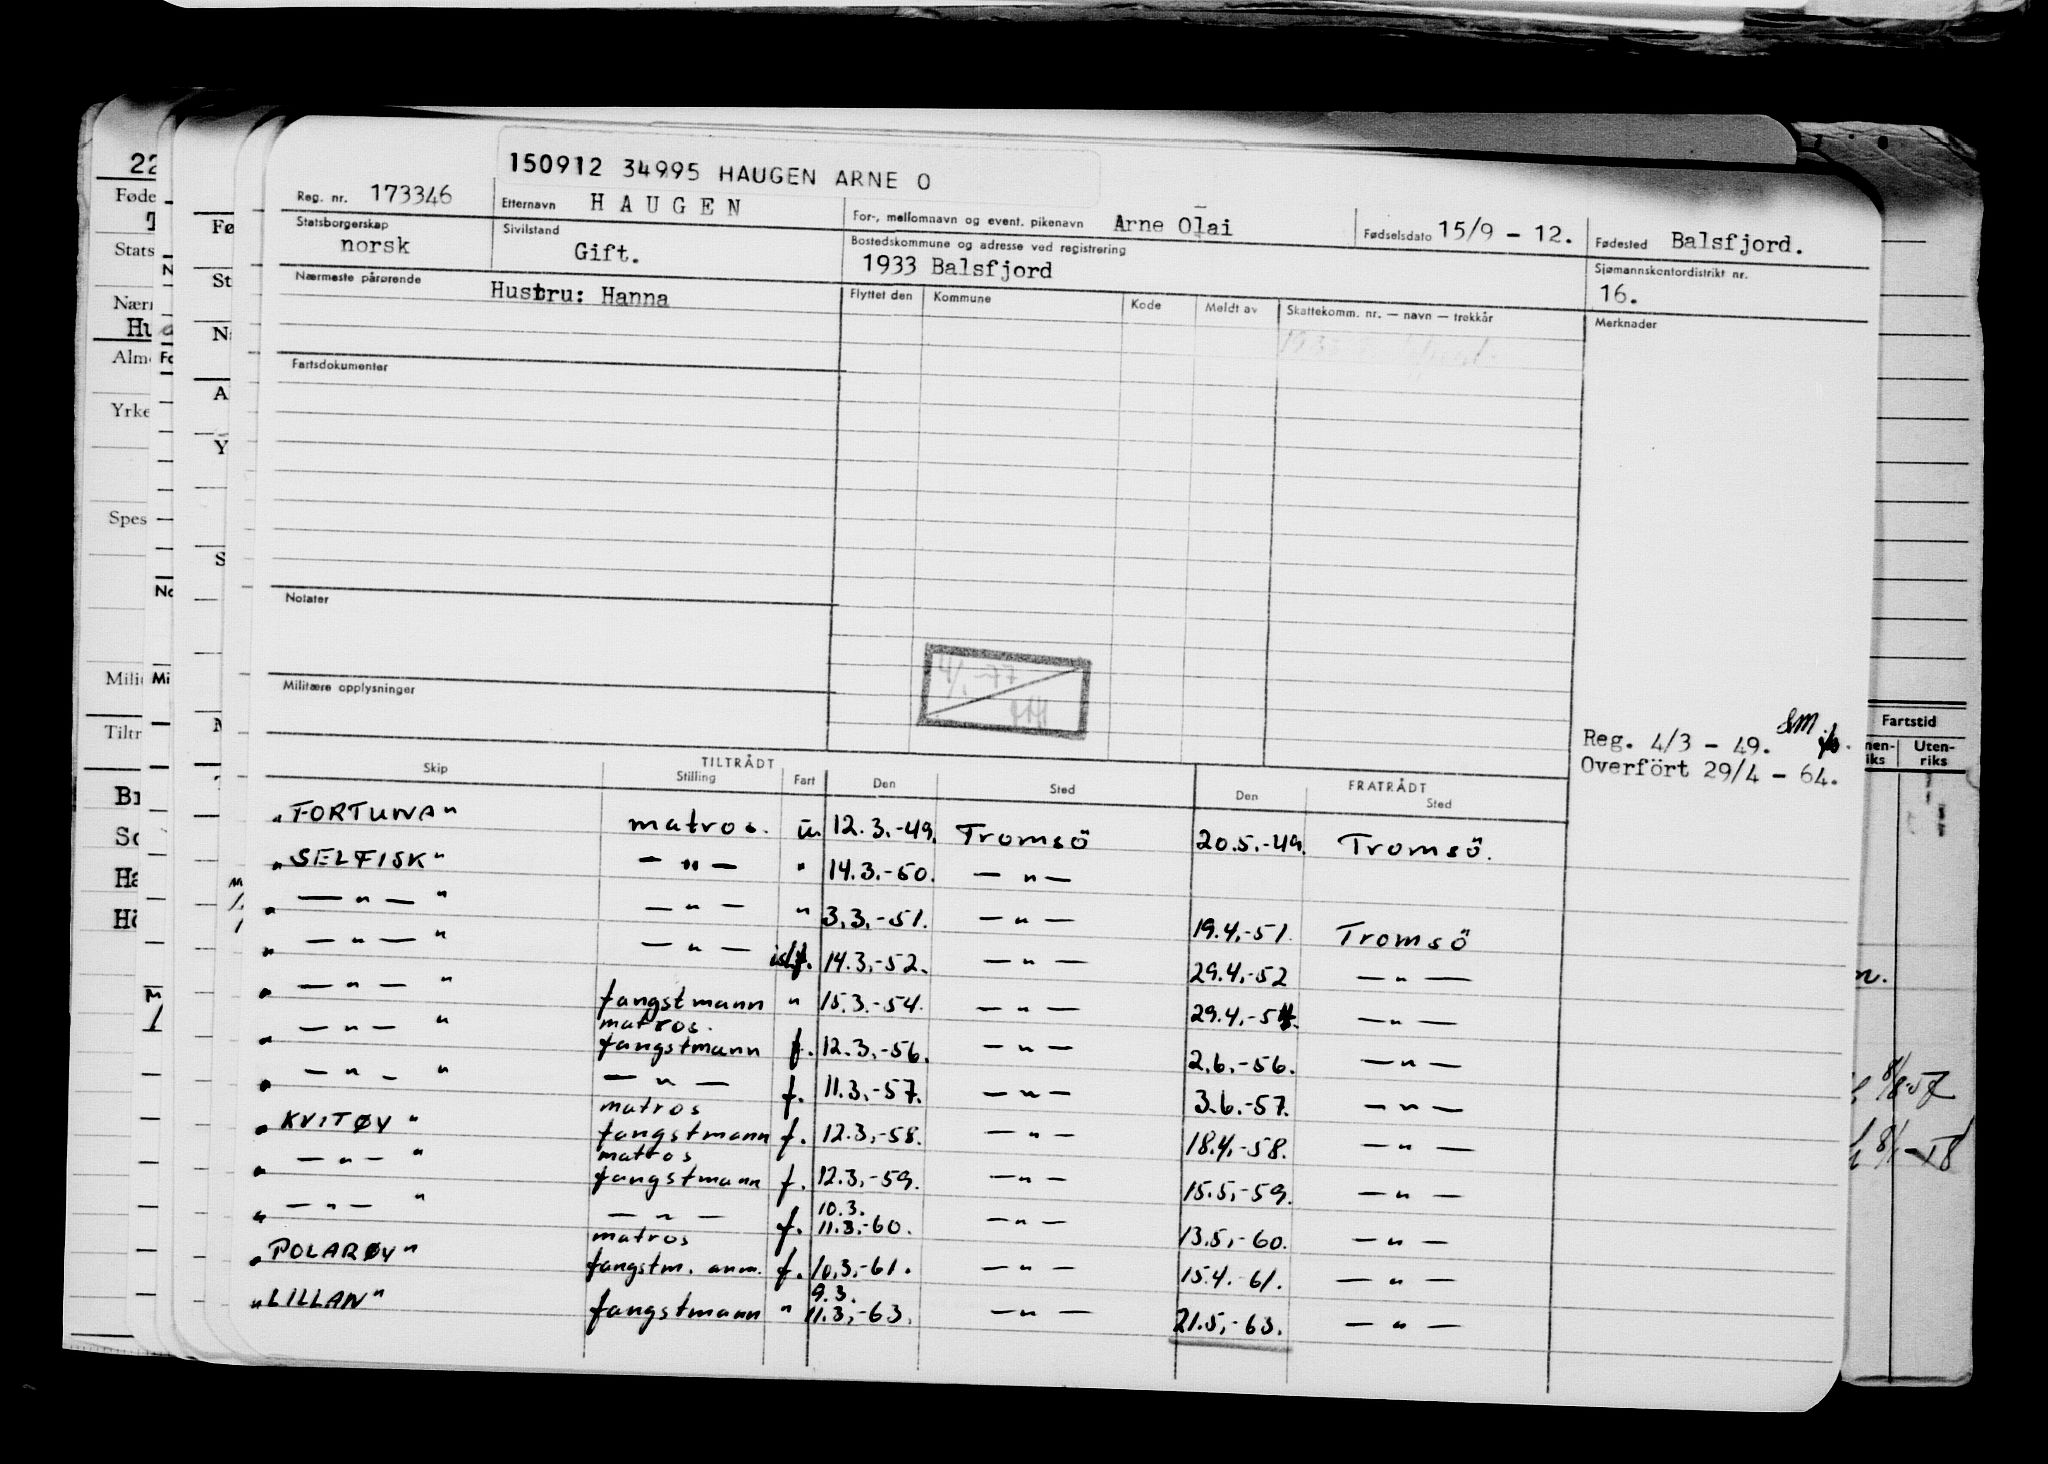 150912 34995 HAUGEN ARNE O
Reg. nr. 173346 Etternavn HAUGEN For-, mellomnavn og event. pikenavn Arne Olai Fødselsdato 15/9 - 12. Fødested Balsfjord.
Statsborgerskap norsk Sivilstand Gift. Bostedskommune og adresse ved registrering 1933 Balsfjord Sjømannskontordistrikt nr. 16.
Nærmeste pårørende Hustru: Hanna Flyttet den Kommune Kode Meldt av Skattekomm. nr. — navn — trekkår Merknader
Fartsdokumenter
Notater
4/1-77
Militære opplysninger
Reg. 4/3 - 49.
Overført 29/4 - 64.
TILTRÅDT FRATRÅDT
Skip Stilling Fart Den Sted Den Sted
"FORTUNA" matros. u. 12.3.-49. Tromsö 20.5.-49. Tromsö.
"SELFISK" — " — " 14.3.-50. — " —
" — " — " — " — " 3.3.-51. — " — 19.4.-51. Tromsö
" — " — " — " — ishf. 14.3.-52. — " — 29.4.-52 — " —
" — " — " fangstmann " 15.3.-54. — " — 29.4.-54. — " —
matros.
" — " — " fangstmann f. 12.3.-56. — " — 2.6.-56. — " —
" — " — " — " — f. 11.3.-57. — " — 3.6.-57. — " —
matros
"KVITØY" fangstmann f. 12.3.-58. — " — 18.4.-58. — " —
matros
" — " — " fangstmann f. 12.3.-59. — " — 15.5.-59. — " —
10.3.
" — " — " — " — f. 11.3.-60. — " — 13.5.-60. — " —
matros
"POLARØY" fangstm. anm. f. 10.3.-61. — " — 15.4.-61. — " —
9.3.
"LILLAN" fangstmann " 11.3.-63. — " — 21.5.-63. — " —
22
Føde
Stats
Nærn
Hu
Alm
Yrke
Spes
Mili
Tiltr
Fartstid
Uten-
riks
8/8-57
8/1-58